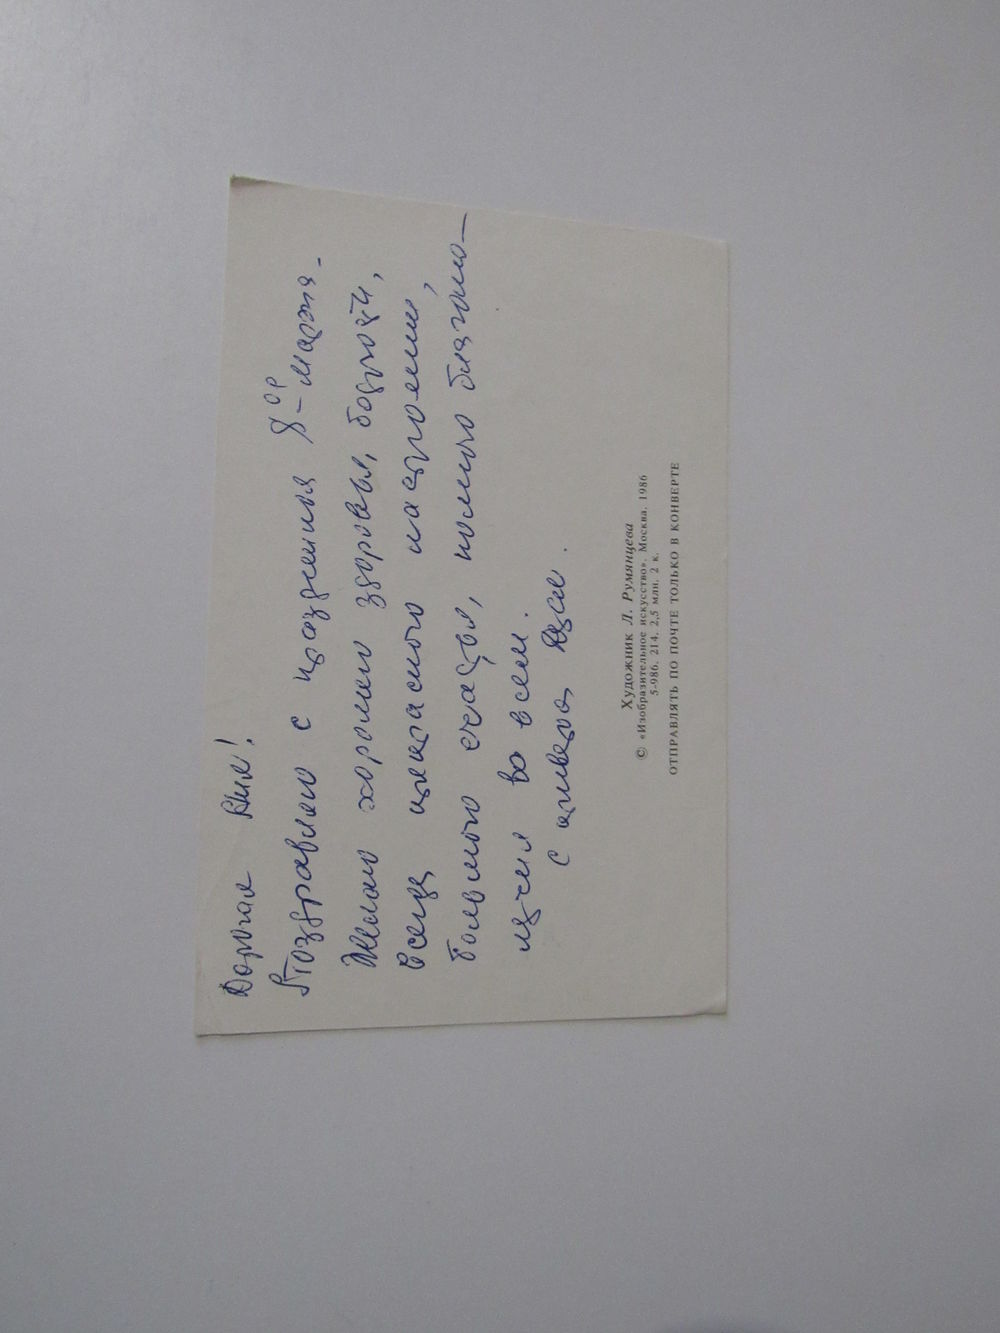 Дорогая Аня!
Поздравляю с праздником 8ое марта.
Желаю хорошего здоровья, бодрости,
всегда прекрасного настроения,
большого счастья, полного благопо-
лучия во всем.
С приветом
Художник Л. Румянцева
© «Изобразительное искусство». Москва. 1986
5-986. 214. 2,5 млн. 2 к.
ОТПРАВЛЯТЬ ПО ПОЧТЕ ТОЛЬКО В КОНВЕРТЕ